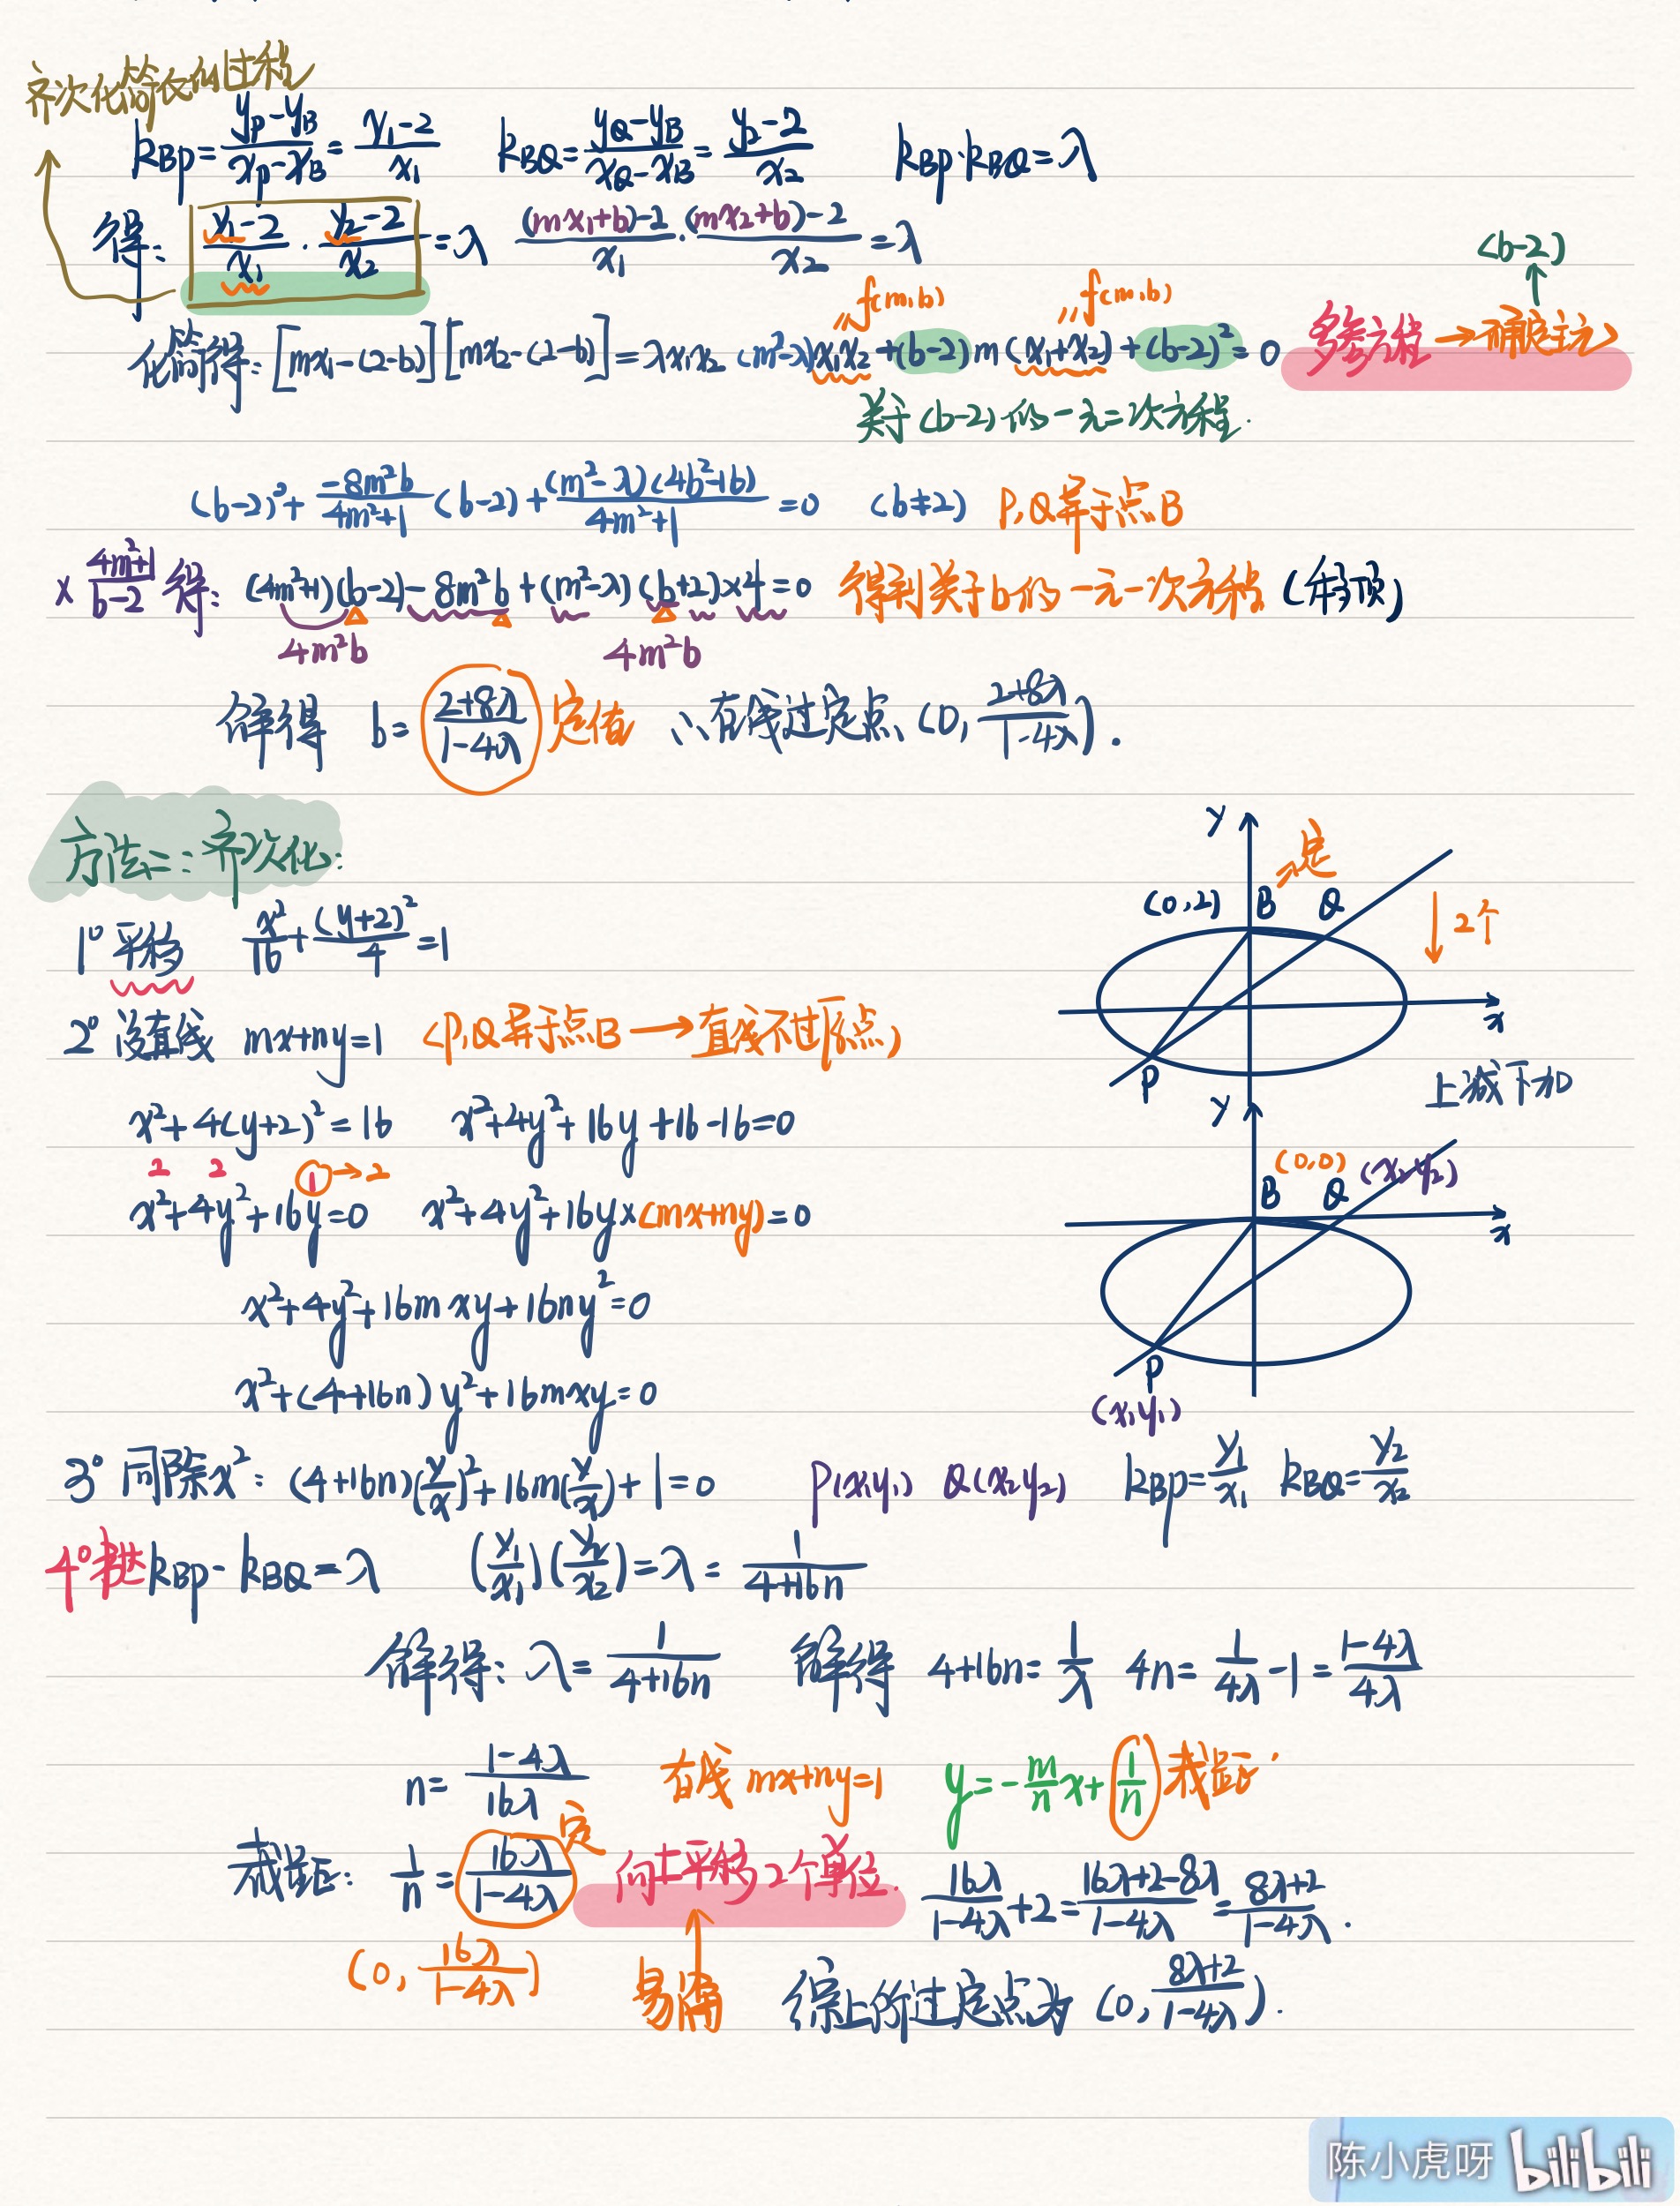 齐次化简化过程
k_BP=(y_P-y_B)/(x_P-x_B)=(y₁-2)/x₁ k_BQ=(y_Q-y_B)/(x_Q-x_B)=(y₂-2)/x₂ k_BP·k_BQ=λ
得: (y₁-2)/x₁·(y₂-2)/x₂=λ ((mx₁+b)-2)/x₁·((mx₂+b)-2)/x₂=λ
(b-2)
f(m,b) f(m,b)
化简得: [mx₁-(2-b)][mx₂-(2-b)]=λx₁x₂ (m²-λ)x₁x₂+(b-2)m(x₁+x₂)+(b-2)²=0 多参方程→确定主元
关于(b-2)的一元二次方程.
(b-2)²+(-8m²b)/(4m²+1)(b-2)+(m²-λ)(4b²-16)/(4m²+1)=0 (b≠2) P,Q异于点B
×(4m²+1)/(b-2)得: (4m²+1)(b-2)-8m²b+(m²-λ)(b+2)×4=0 得到关于b的一元一次方程
4m²b 4m²b
解得 b=(2+8λ)/(1-4λ) 定值 ∴直线过定点(0,(2+8λ)/(1-4λ)).
方法二:齐次化:
1° 平移 x²/16+(y+2)²/4=1
2° 设直线 mx+ny=1 (P,Q异于点B→直线不过原点)
x²+4(y+2)²=16 x²+4y²+16y+16-16=0
2 2 1→2
x²+4y²+16y=0 x²+4y²+16y×(mx+ny)=0
x²+4y²+16mxy+16ny²=0
x²+(4+16n)y²+16mxy=0
y 定
(0,2) B Q
↓2个
x
P
上减下加
y
(0,0) (x₂y₂)
B Q
x
P
(x₁y₁)
3° 同除x²: (4+16n)(y/x)²+16m(y/x)+1=0 P(x₁y₁) Q(x₂y₂) k_BP=y₁/x₁ k_BQ=y₂/x₂
4° k_BP·k_BQ=λ (y₁/x₁)(y₂/x₂)=λ=1/(4+16n)
解得: λ=1/(4+16n) 解得 4+16n=1/λ 4n=1/4λ-1=(1-4λ)/4λ
n=(1-4λ)/16λ 直线 mx+ny=1 y=-m/n x+1/n 截距
截距: 1/n=16λ/(1-4λ) 定 向上平移2个单位. 16λ/(1-4λ)+2=(16λ+2-8λ)/(1-4λ)=(8λ+2)/(1-4λ).
(0,16λ/(1-4λ)) 易漏 综上所过定点为(0,(8λ+2)/(1-4λ)).
陈小虎呀 bilibili